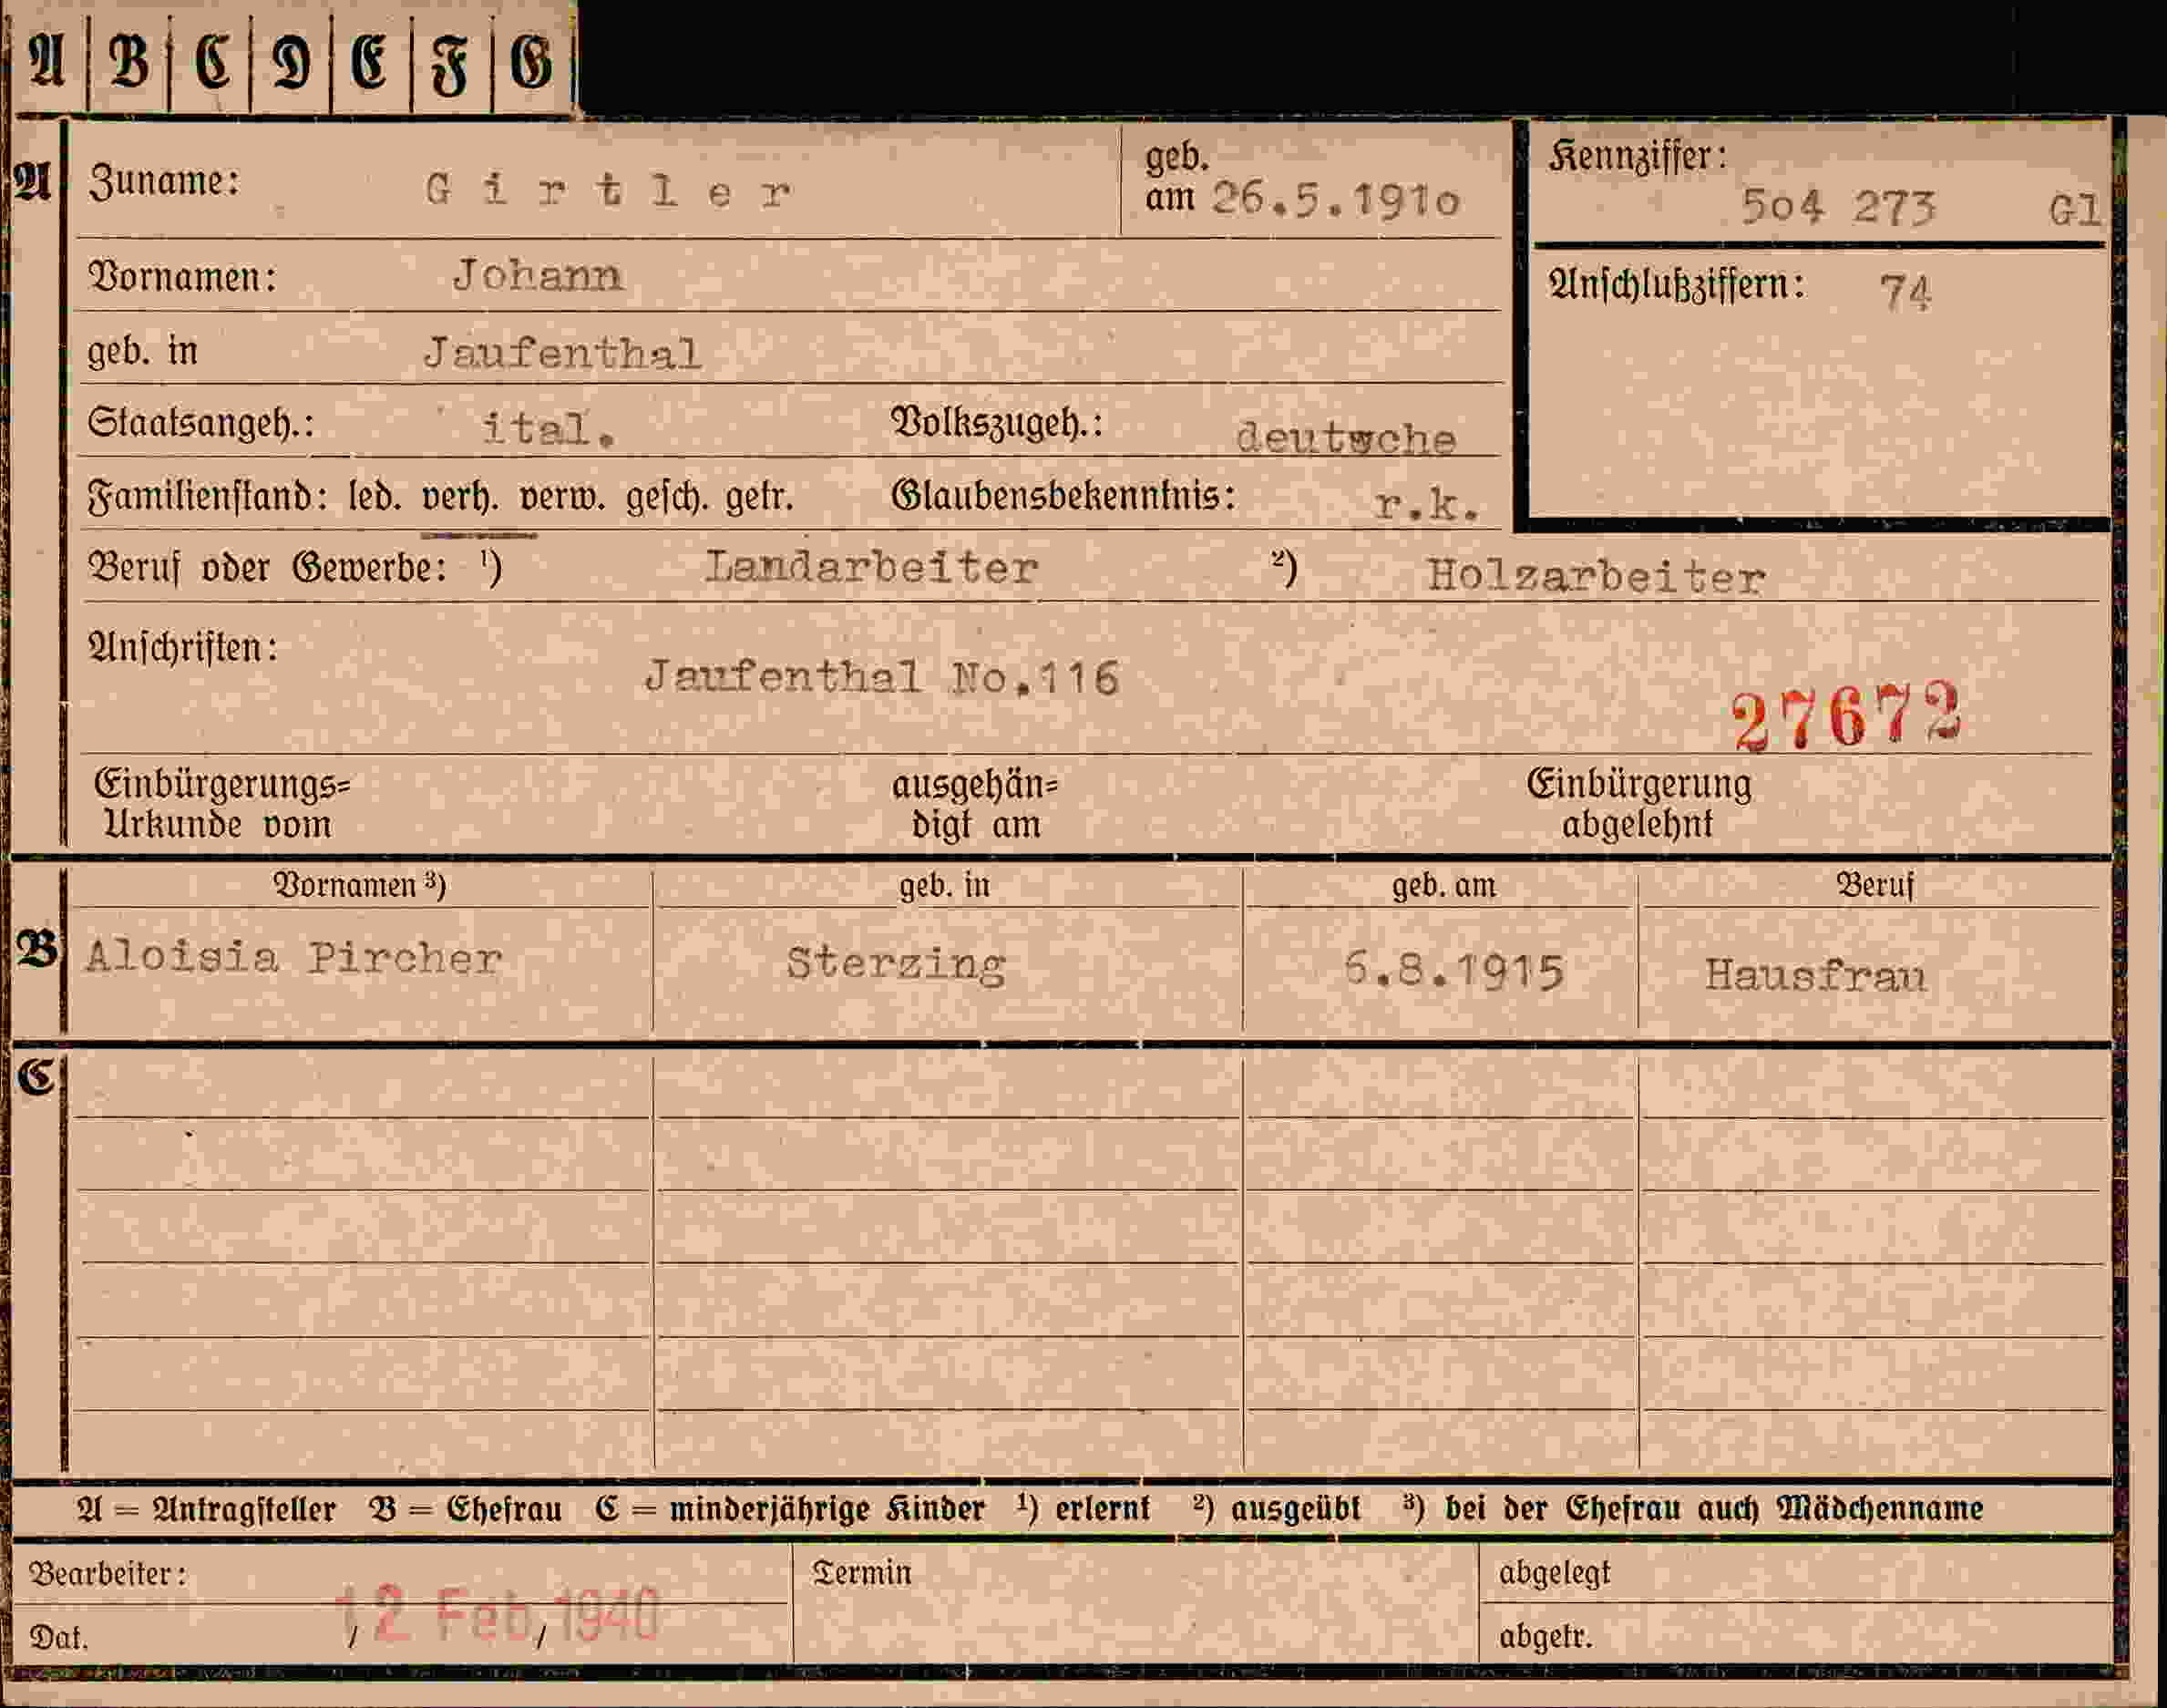 A B C D E F G
A Zuname: Girtler geb. am 26.5.191o Kennziffer: 5o4 273 Gl
Vornamen: Johann Anschlußziffern: 74
geb. in Jaufenthal
Staatsangeh.: ital. Volkszugeh.: deutwche
Familienstand: led. verh. verw. gesch. getr. Glaubensbekenntnis: r.k.
Beruf oder Gewerbe: ¹) Landarbeiter ²) Holzarbeiter
Anschriften: Jaufenthal No.116
27672
Einbürgerungs= ausgehän= Einbürgerung
Urkunde vom digt am abgelehnt
Vornamen ³) geb. in geb. am Beruf
B Aloisia Pircher Sterzing 6.8.1915 Hausfrau
C
A = Antragsteller B = Ehefrau C = minderjährige Kinder ¹) erlernt ²) ausgeübt ³) bei der Ehefrau auch Mädchenname
Bearbeiter: Termin abgelegt
12 Feb. 1940
Dat. / / abgetr.